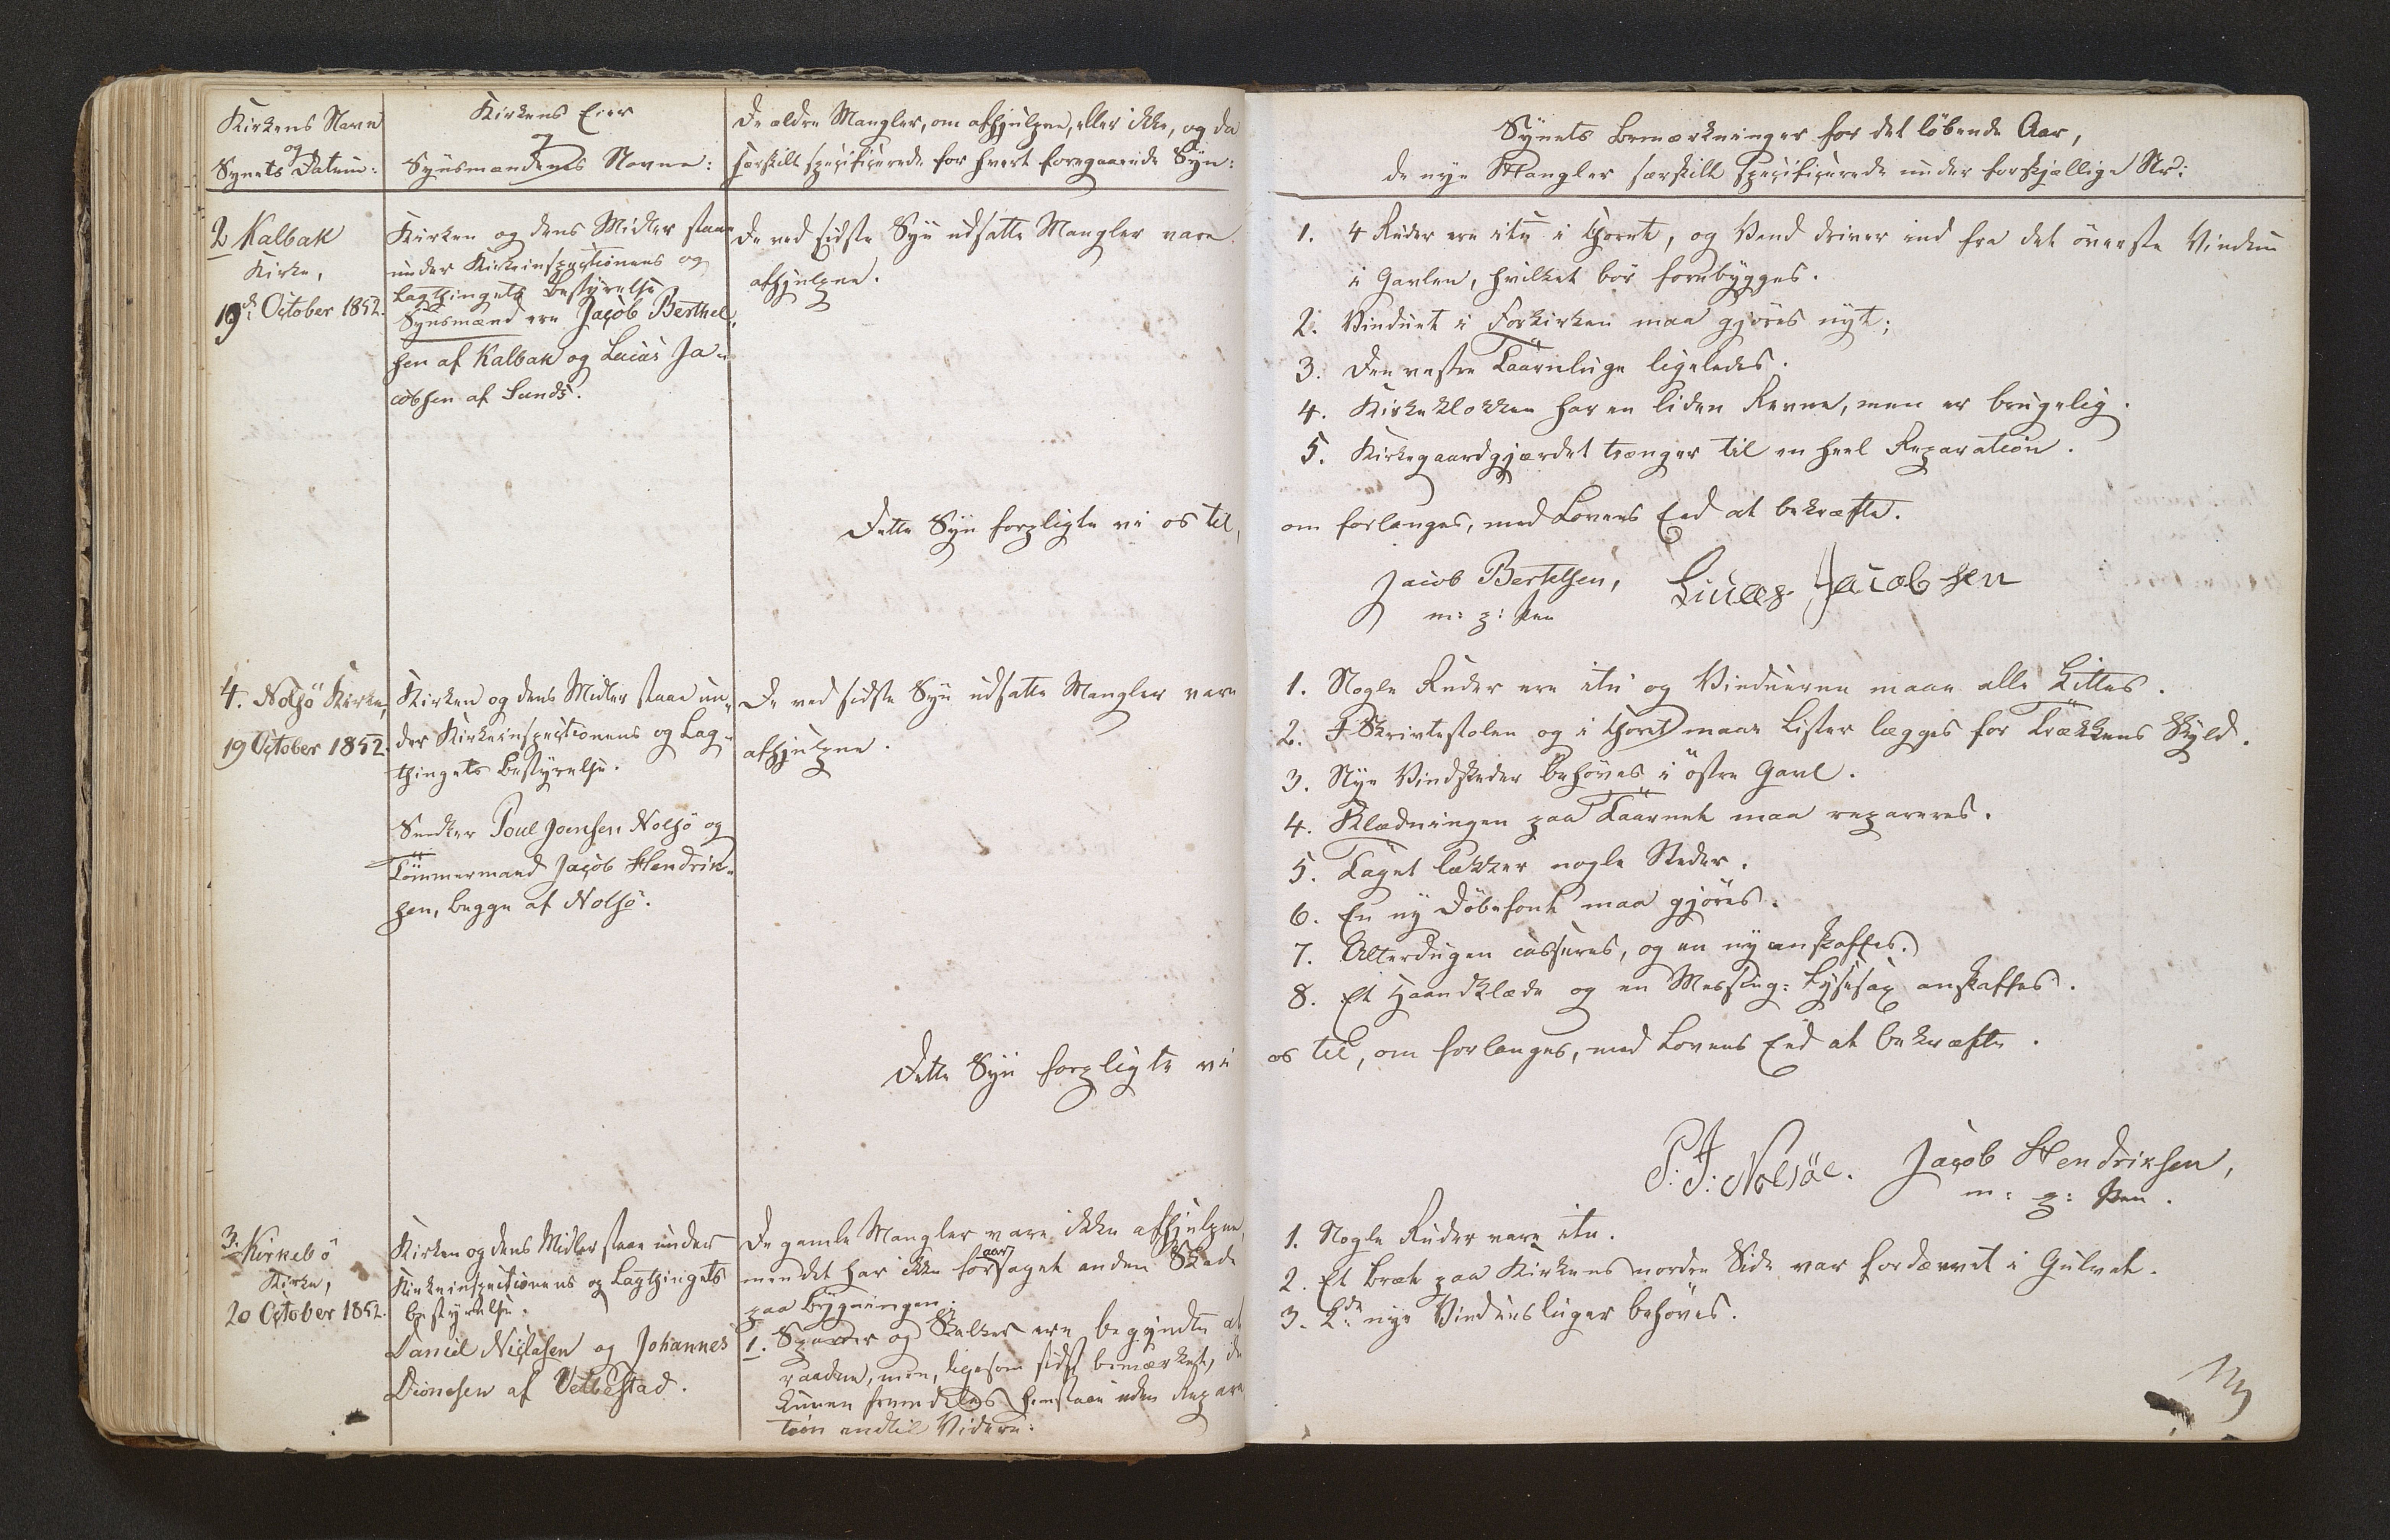 Kirkens Navn
og
Synets Datum:
Kirkens Eier
og
Synsmændenes Navne:
De ældre Mangler, om afhjulpne, eller ikke, og da
særskilt specificerede for hvert foregaaende Syn:
2 Kalbak
Kirke,
19d: October 1852.
Kirken og dens Midler staae
under Kirkeinspectionens og
Lagthingets Bestyrelse
Synsmænd ere Jacob Berthel-
sen af Kalbak og Lucas Ja-
cobsen af Sund.
De ved sidste Syn udsatte Mangler vare
afhjulpne.
Dette Syn forpligte vi os til,
4. Nolsö Kirke,
19 October 1852.
Kirken og dens Midler staae un-
der Kirkeinspectionens og Lag-
thingets Bestyrelse.
Snedker Poul Joensen Nolsö og
Tömmermand Jacob Hendrik-
sen, begge af Nolsö.
De ved sidste Syn udsatte Mangler vare
afhjulpne.
Dette Syn forpligte vi
3. Kirkebö
Kirke,
20 October 1852.
Kirken og dens Midler staae under
Kirkeinspectionens og Lagthingets
Bestyrelse.
Daniel Niclasen og Johannes
Dionesen af Velbestad.
De gamle Mangler vare ikke afhjulpne,
men det har ikke foraarsaget anden Skade
paa Bygningen.
1. Sparrer og Skalker ere begyndte at
raadne, men, ligesom sidst bemærket, de
kunne fremdeles henstaae uden Repara
tion indtil Videre:
Synets Bemærkninger for det löbende Aar,
de nye Mangler særskilt specificerede under forskjællige Nr:
1. 4 Ruder ere itu i Choret, og Vand driver ind fra det överste Vindue
i Gavlen, hvilket bör forebygges.
2. Vinduet i Forkirken maa gjöres nyt;
3. Den vestre Taarnluge ligeledes.
4. Kirkeklokken har en liden Revne, men er brugelig.
5. Kirkegaardgjærdet trænger til en heel Reparation.
om forlanges, med Lovens Eed at bekræfte.
Jacob Bertelsen, Lucas Jacobsen
m: p: Pen
1. Nogle Ruder ere itu og Vinduerne maae alle kittes.
2. I Skriftestolen og i Choret maae Lister lægges for Trækkens Skyld.
3. Nye Vindskeder behöves i östre Gavl.
4. Klædningen paa Taarnet maa repareres.
5. Taget lækker nogle Steder.
6. En ny Döbefont maa gjöres.
7. Alterdugen casseres, og en ny anskaffes.
8. Et Haandklæde og en Messing: Lysesax anskaffes.
os til, om forlanges, med Lovens Eed at bekræfte.
P: J: Nolsöe. Jacob Hendriksen,
m: p: Pen.
1. Nogle Ruder vare itu.
2. Et Bræt paa Kirkens nordre Side var fordærvet i Gulvet.
3. 2de nye Vinduesluger behöves.